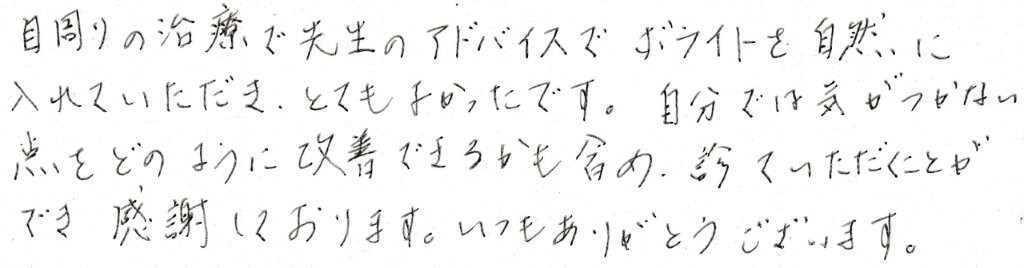 目周りの治療で先生のアドバイスでボライトを自然に
入れていただき、とてもよかったです。自分では気がつかない
点をどのように改善できるかも含め、診ていただくことが
でき感謝しております。いつもありがとうございます。